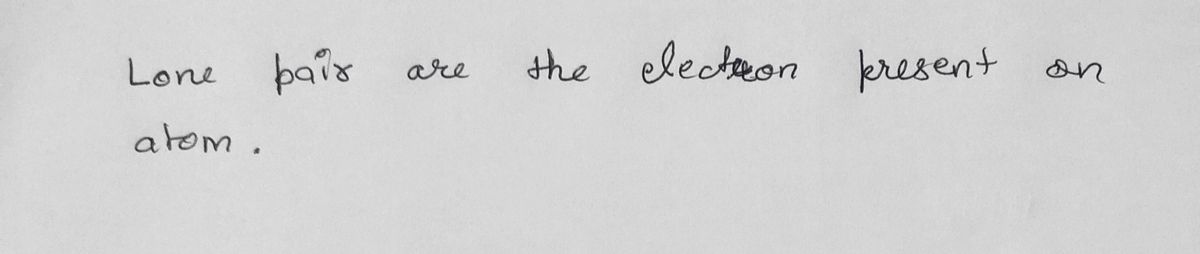 Lone pair are the electron present on
atom.